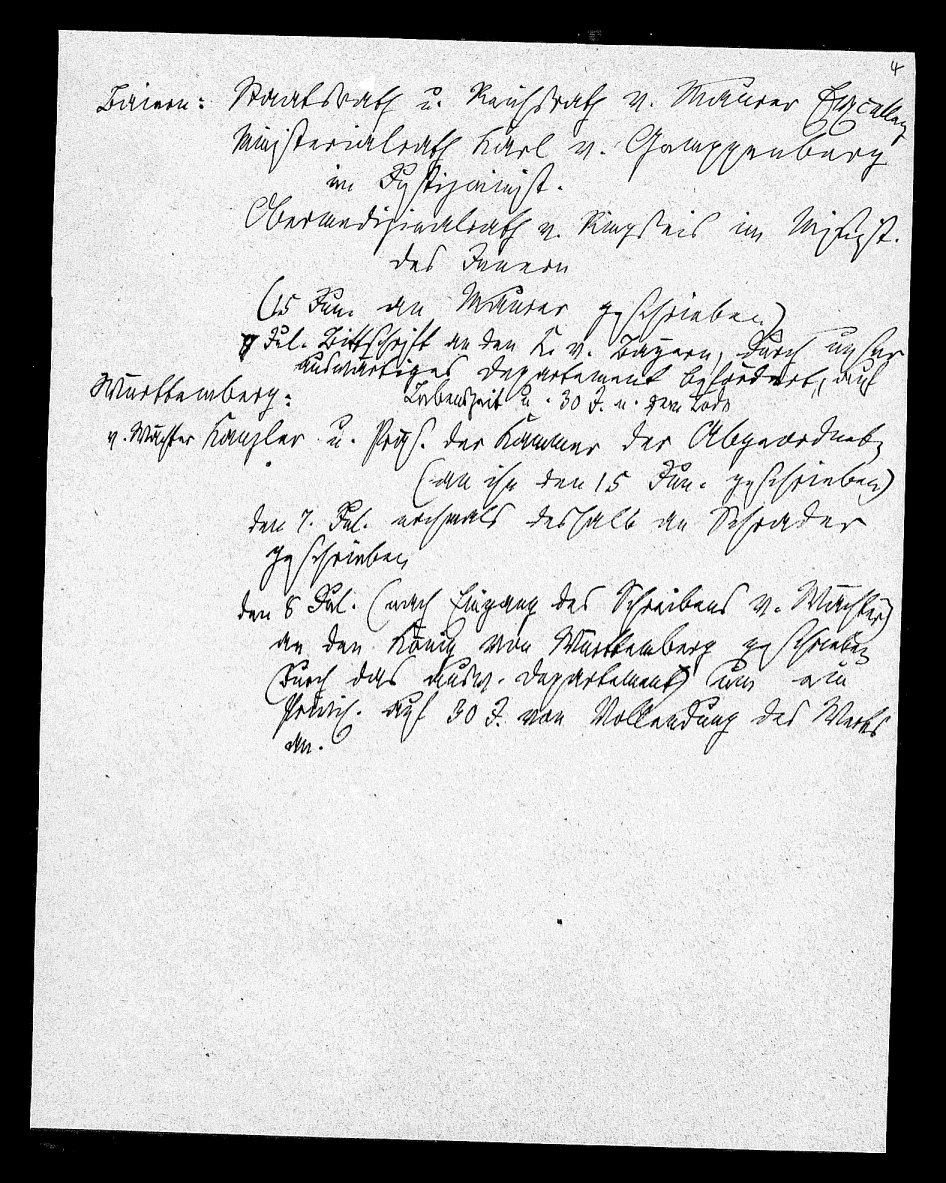 4
Baiern: Staatsrath u. Reichsrath v. Maurer Excellenz
Ministerialrath Karl v. Gumppenberg
im Justizminist.
Obermedizinalrath v. Ringseis im Minist.
des Innern
(15 Jun. an Maurer geschrieben)
9 Jul. Bittschrift an den K. v. Bayern, durch unser
auswärtiges Departement befördert, auf
Lebenszeit u. 30 J. n. dem Tode
Württemberg:
v. Wächter Kanzler u. Präs. der Kammer der Abgeordneten
(an ihn den 15 Jun. geschrieben)
den 7. Jul. nochmals deshalb an Schrader
geschrieben
den 8 Jul. (nach Eingang des Schreibens v. Wächter)
an den König von Württemberg geschrieben
(durch das ausw. Departement) um ein
Privil. auf 30 J. von Vollendung des Werks
an.